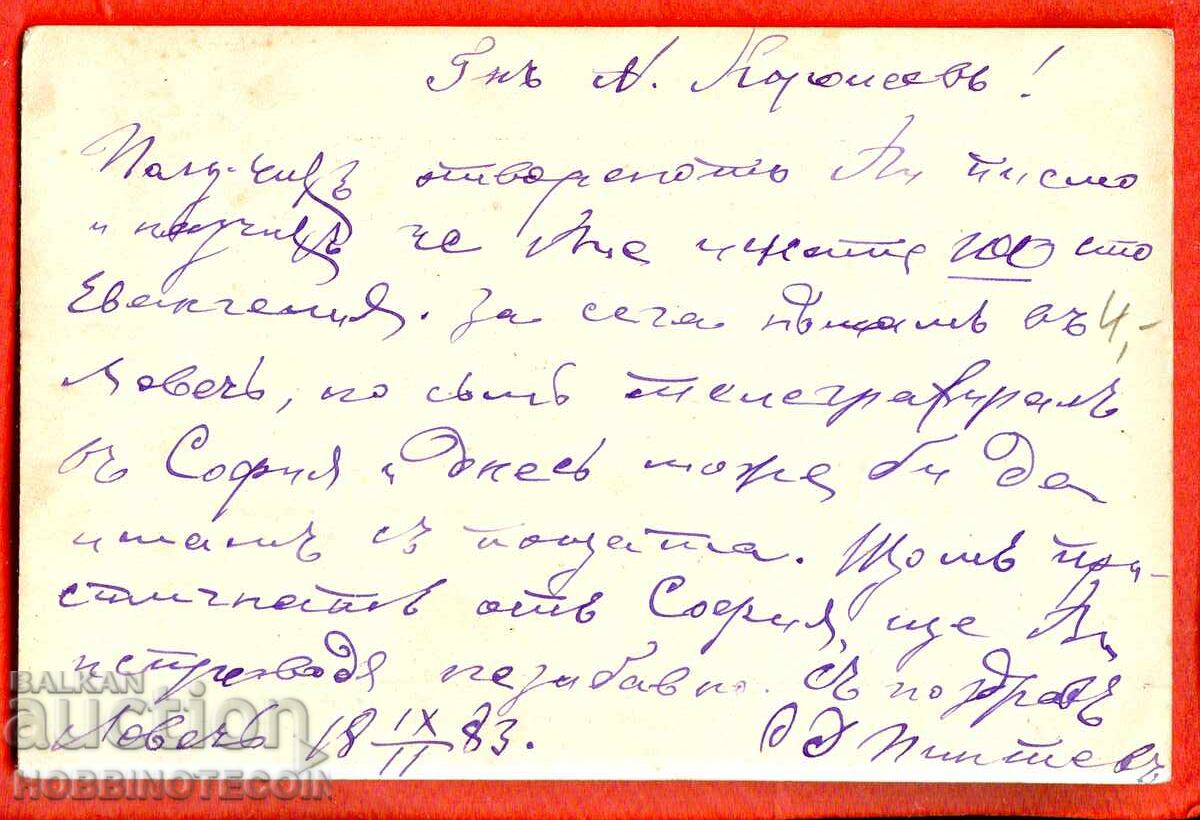 Гнъ А.
Получихъ отвореното Ви писмо
и научихъ че Вие искате 100 сто
Евангелия. За сега нѣмамъ въ 4,-
Ловечъ, но съмъ телеграфиралъ
въ София и днесъ може би да
имамъ съ пощата. Щомъ при-
стигнатъ отъ София, ще Ви
испроводя незабавно. Съ поздравъ
Ловечъ 18 IX/II 83.
BALKAN
auction
HOBBINOTECOIN